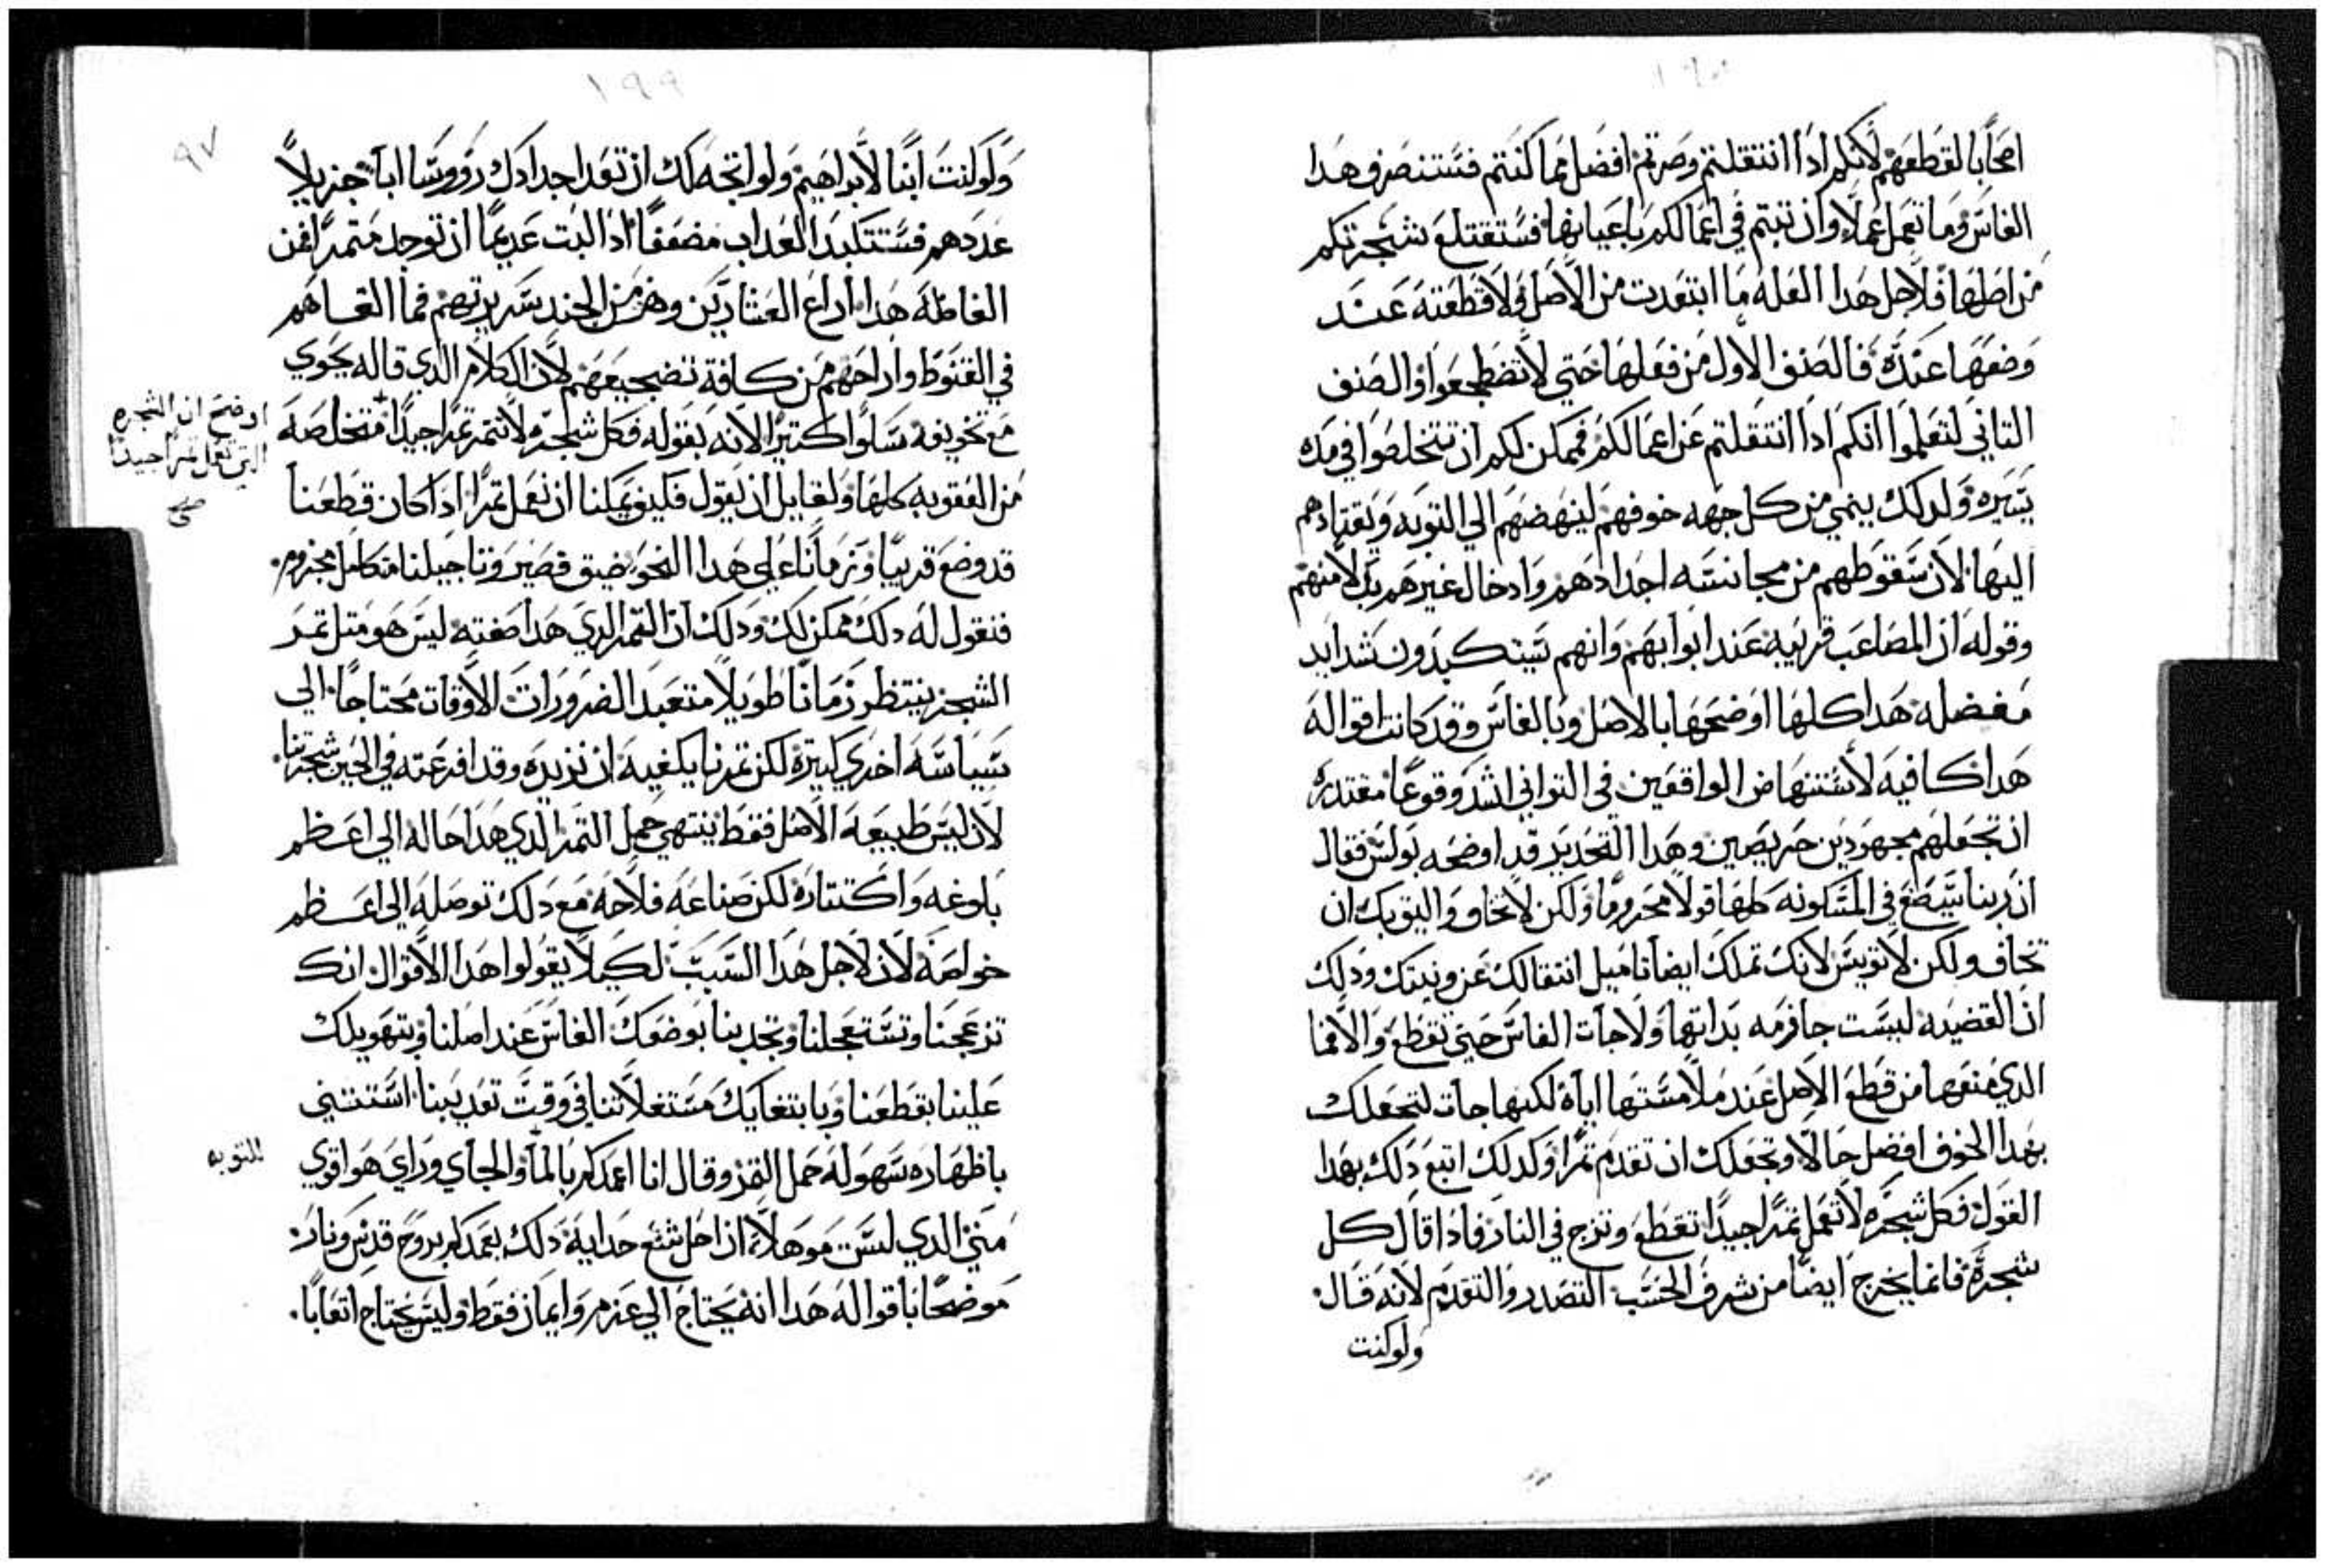 اصحابا لقطعهم لانكم ادا انتقلتم وصرتم افضل مما كنتم فستنصرف هدا
الفاس وما تعمل عملا وان تبتم في اعمالكم باعيانها فستقتلع شجرتكم
من اصلها فلاجل هدا العله ما ابتعدت من الاصل ولا قطعته عند
وضعها عنده فالصنف الاول من فعلها حتي لا تضطجعوا والصنف
التاني لتعلموا انكم ادا انتقلتم عن اعمالكم فممكن لكم ان تتخلصوا في مده
يسيره ولدلك ينمي من كل جهه خوفهم لينهضهم الي التوبه ويقتادهم
اليها لان سقوطهم من مجانسه اجدادهم وادخال غيرهم بدلا منهم
وقوله ان المصاعب قريبه عند ابوابهم وانهم سيتكبدون شدايد
مفضله هدا كلها اوضحها بالاصل وبالفاس وقد كانت اقواله
هدا كافيه لاستنهاض الواقفين في التواني اشد وقوعا مقتدره
ان تجعلهم مجهودين حريصين وهدا التحديد قد اوضحه بولس فقال
ان ربنا سيضع في المسكونه كلها قولا مجزوما ولكن لا تخاف واليق بك ان
تخاف ولكن لا تويس لانك تملك ايضا تاميل انتقالك عن ونيتك ودلك
ان القضيه ليست جازمه بداتها ولا جات الفاس حتي تقطع والا فما
الدي منعها من قطع الاصل عند ملامستها اياه لكنها جات لتجعلك
بهدا الخوف افضل حالا وتجعلك ان تقدم تمرا وكدلك اتبع دلك بهدا
القول فكل شجره لا تعمل تمرا جيدا تقطع وتزج في النار فادا قال كل
شجره فانما يخرج ايضا من شرف الحسب التصدر والتقدم لانه قال
ولو كنت
١٩٩
٩٧
ولو كنت ابنا لابراهيم ولو اتجه لك ان تعد اجدادك رووسا اباء جزيلا
عددهم فستتكبد العداب مضعفا ادا لبت عديما ان توجد متمرا فمن
الفاظه هدا اراع العشارين وهز من الجند سريرتهم فما القاهم
في القنوط واراحهم من كافة تضجيعهم لان الكلام الدي قاله يحوي
مع تخويفه سلوا كتيرا لانه بقوله فكل شجره لا تتمر تمرا جيدا متخلصه
اوضح ان الشجره
التي تعمل تمرا جيدا
صح
من العقوبه كلها ولقايل ان يقول فكيف يمكننا ان نعمل تمرا ادا كان قطعنا
قد وضع قريبا وزماننا علي هدا النحو ضيق قصير وتاجيلنا متكامل مجزوم
فنقول له دلك ممكن لك ودلك ان التمر الدي هدا صفته ليس هو متل تمر
الشجر ينتظر زمانا طويلا متعبد الضرورات الاوقات محتاجا الي
سياسه اخري كتيره لكن تمرنا يكفيه ان نريده وقد افرعته في الحين شجرتنا
لان ليس طبيعه الاصل فقط ينتهي حمل التمر الدي هدا حاله الي اعظم
بلوغه واكتتاره لكن صناعه فلاحه مع دلك توصله الي اعظم
خواصه لان لاجل هدا السبب لكيلا يقولوا هدا الاقوال انك
تزعجنا وتستعجلنا وتجدبنا بوضعك الفاس عند اصلنا وبتهويلك
علينا بقطعنا وبابتغايك مستغلاتنا في وقت تعديبنا استتني
باظهاره سهوله حمل التمر وقال انا اعمدكم بالماء والجاي وراي هو اقوي
للتوبه
مني الدي لست موهلا ان احل شسع حدايه دلك يعمدكم بروح قدس ونار
موضحا باقواله هدا انه يحتاج الي عزم وايمان فقط وليس يحتاج اتعابا